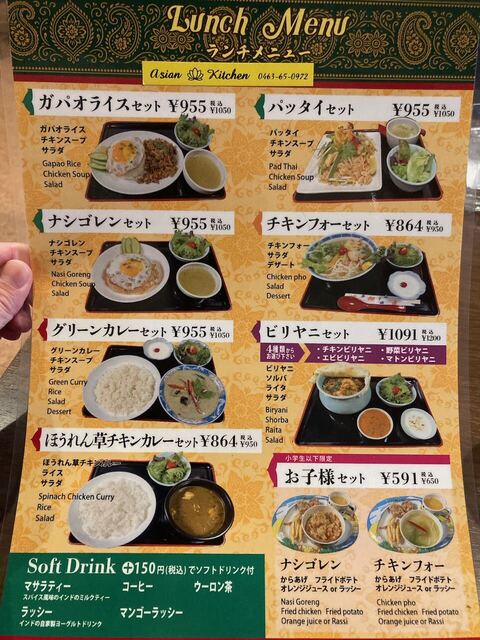 Lunch Menu
ランチメニュー
Asian Kitchen 0463-65-0972
ガパオライスセット ¥955 税込 ¥1050
ガパオライス
チキンスープ
サラダ
Gapao Rice
Chicken Soup
Salad
パッタイセット ¥955 税込 ¥1050
パッタイ
チキンスープ
サラダ
Pad Thai
Chicken Soup
Salad
ナシゴレンセット ¥955 税込 ¥1050
ナシゴレン
チキンスープ
サラダ
Nasi Goreng
Chicken Soup
Salad
チキンフォーセット ¥864 税込 ¥950
チキンフォー
サラダ
デザート
Chicken pho
Salad
Dessert
グリーンカレーセット ¥955 税込 ¥1050
グリーンカレー
チキンスープ
サラダ
Green Curry
Rice
Salad
Dessert
ビリヤニセット ¥1091 税込 ¥1200
4種類から
お選び下さい
・チキンビリヤニ ・野菜ビリヤニ
・エビビリヤニ ・マトンビリヤニ
ビリヤニ
ソルバ
ライタ
サラダ
Biryani
Shorba
Raita
Salad
ほうれん草チキンカレーセット ¥864 税込 ¥950
ほうれん草チキンカレー
ライス
サラダ
Spinach Chicken Curry
Rice
Salad
小学生以下限定
お子様セット ¥591 税込 ¥650
ナシゴレン
からあげ フライドポテト
オレンジジュース or ラッシー
Nasi Goreng
Fried chicken Fried potato
Orange juice or Rassi
チキンフォー
からあげ フライドポテト
オレンジジュース or ラッシー
Chicken pho
Fried chicken Fried potato
Orange juice or Rassi
Soft Drink +150円(税込)でソフトドリンク付
マサラティー コーヒー ウーロン茶
スパイス風味のインドのミルクティー
ラッシー マンゴーラッシー
インドの自家製ヨーグルトドリンク